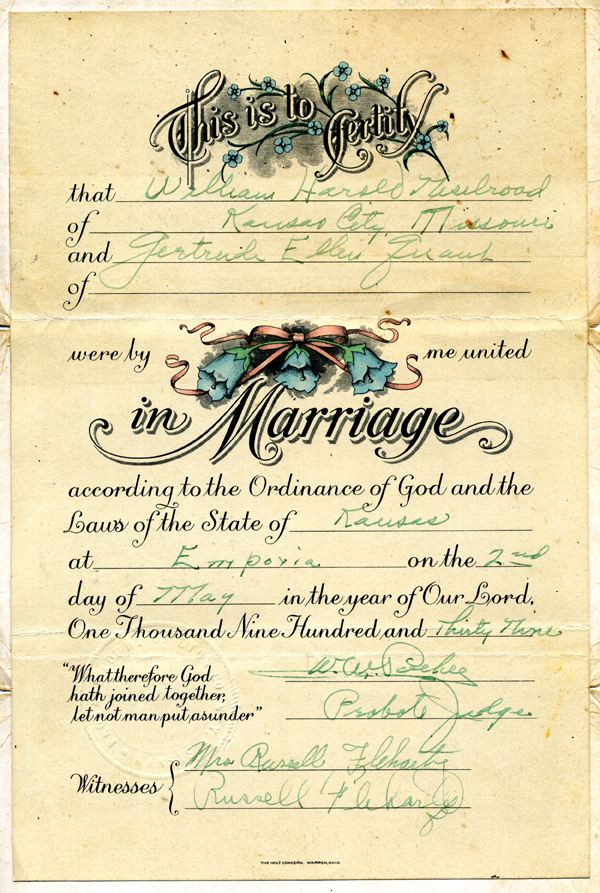 This is to Certify
that William Harold
of Kansas City, Missouri
and Gertrude Ellen
of
were by me united
in Marriage
according to the Ordinance of God and the
Laws of the State of Kansas
at Emporia on the 2nd
day of May in the year of Our Lord,
One Thousand Nine Hundred, and Thirty Nine
"What therefore God
hath joined together,
let not man put asunder"
W.W.
Probate Judge
Mrs Russell
Witnesses
Russell
THE HOLT CONCERN, WARREN, OHIO